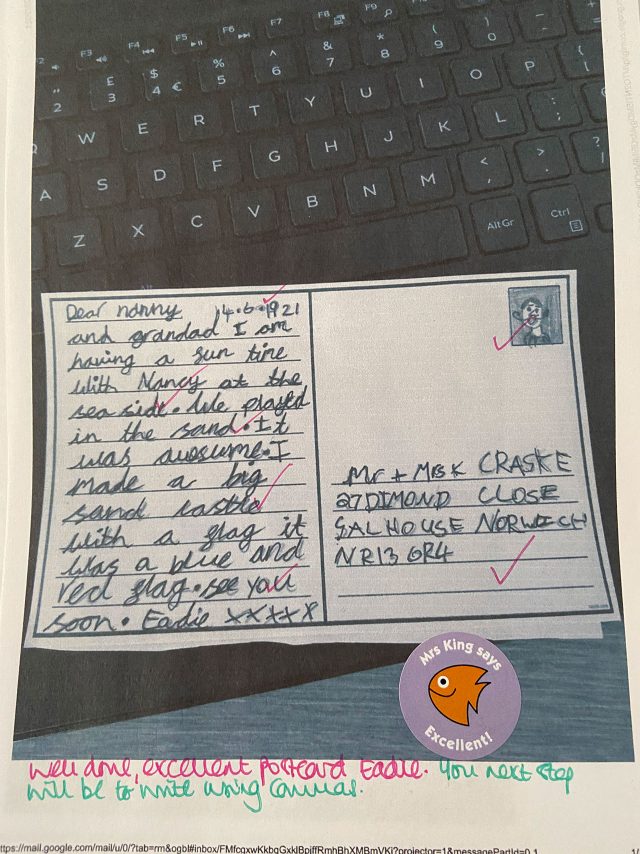 F3 F4 F5 F6 F7 F8 F9
" 2 £ 3 $ 4 € % 5 ^ 6 & 7 * 8 ( 9 ) 0
W E R T Y U I O P
A S D F G H J K L : ;
Z X C V B N M < , > . ? /
Alt Gr Ctrl
Dear nanny 14.6.1921
and grandad I am
having a sun tine
with Nancy at the
sea side. We played
in the sand. It
was auesume. I
made a big
sand castle
with a flag it
was a blue and
red flag. see you
soon. Eadie xxxxx
Mr + Mrs K CRASKE
27 DIMOND CLOSE
SALHOUSE NORWICH
NR13 6R4
Mrs King says
Excellent!
Well done, excellent postcard Eadie. You next step
will be to write using commas.